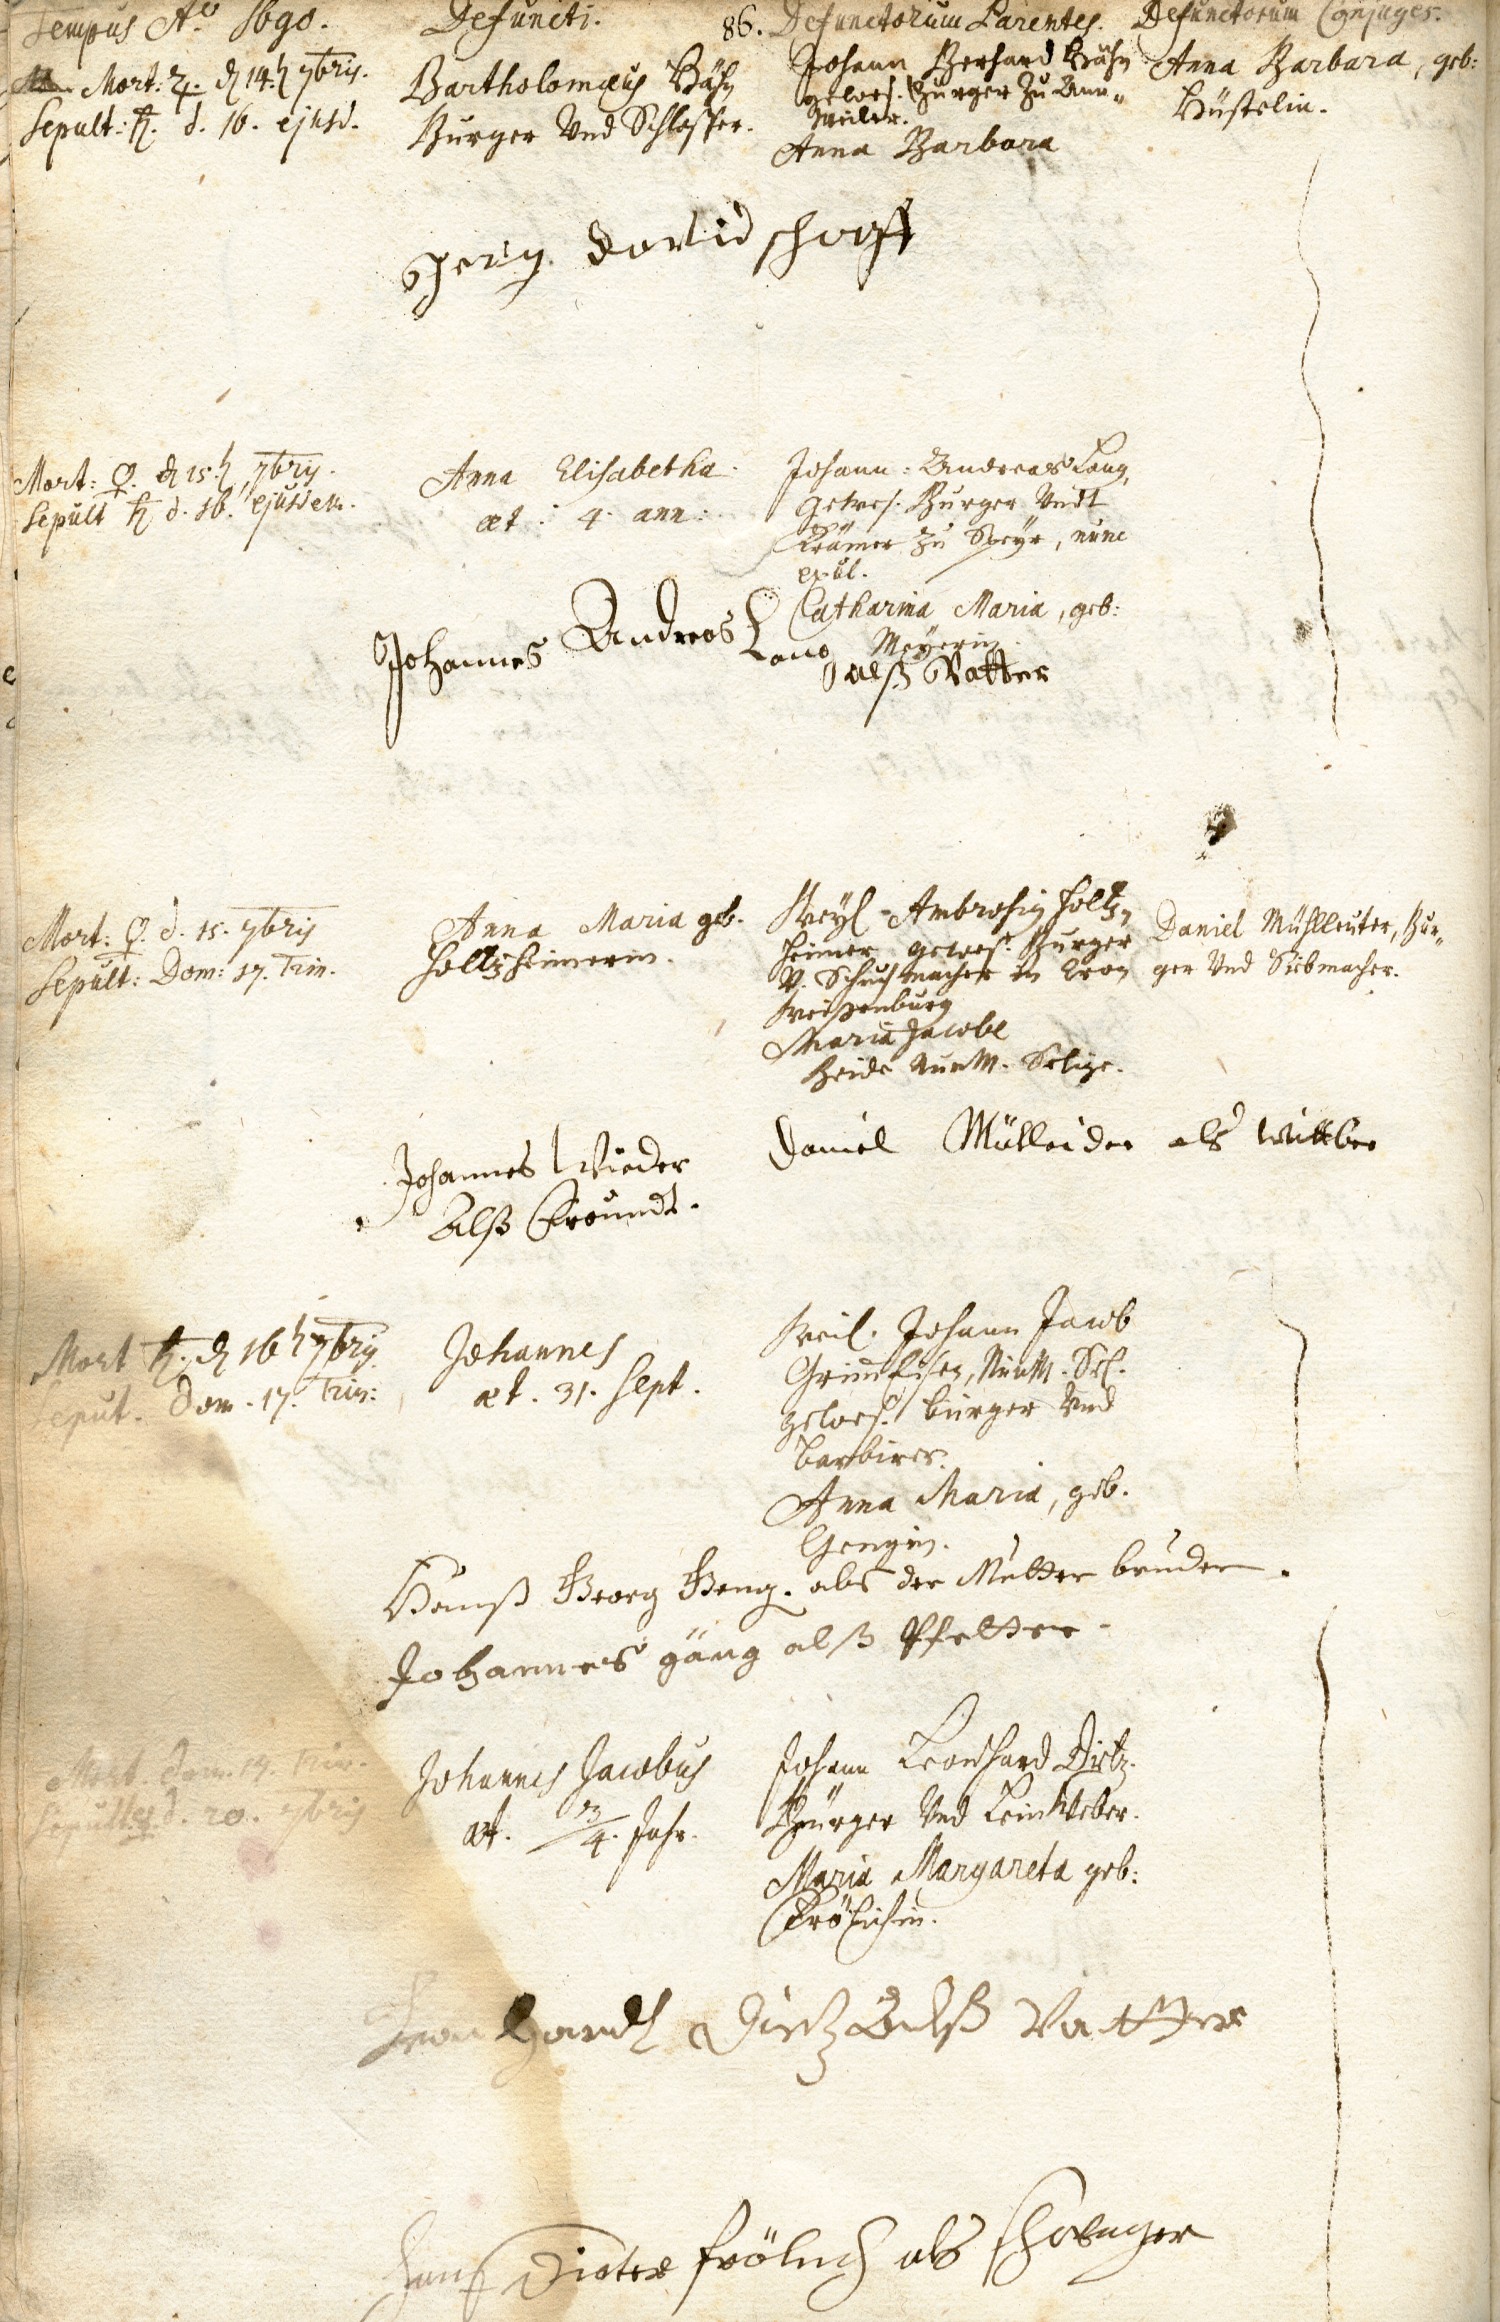 Tempus Aº 1690. Defuncti. 86. Defunctorum Parentes. Defunctorum Conjuges.
Mort: ♃. d. 14. 7bris.
Sepult: ♄. d. 16. ejusd.
Bartholomæus Bähr
Burger Und Schlosser.
Johann Gerhard Bähr
gewes. Burger zu Ann-
weiler.
Anna Barbara
Anna Barbara, geb:
Hüstelin.
Jerg David
Mort: ♀. d. 15. 7bris.
Sepult ♄ d. 16. ejusdem.
Anna Elisabetha.
æt: 4. ann:
Johann: Andreas Lang,
gewes. Burger Undt
Krämer zu Speyr, nunc
exul.
Catharina Maria, geb:
Meyerin.
Johannes Andreas Lang
alß Vatter
Mort: ♀. d. 15. 7bris
Sepult: Dom: 17. Trin.
Anna Maria geb.
Holtzheimerin.
Weyl. Ambrosiy Holtz-
heimer gewes. Burger
V. Schuhmacher in Cron
Weissenburg
Maria Jacobe
Beide nunm. Selige.
Daniel Mühlleuter, Bur-
ger Und Siebmacher.
Daniel Mülleider als Wittber
Johannes Wieder
Alß Freundt.
Mort ♄. d. 16 7bris
Seput. Dom. 17. Trin:
Johannes
æt. 31. Sept.
Weil. Johann Jacob
Grimmeisen, Nunm. Sel.
gewes. burger Und
Barbirer.
Anna Maria, geb.
Gengin.
Hanß Georg Geng. als der Mutter bruder.
Johannes gäng alß Pfetter.
Mort Dom. 17 Trin.
Sepult. d. 20. 7bris
Johannes Jacobus
æt. 3/4. Jahr.
Johann Leonhard Dietz.
Bürger Und Leinweber.
Maria Margareta geb:
Fröhlichin.
Leonhardt Dietz Alß Vatter
Hans Dieter frölich als Schwager